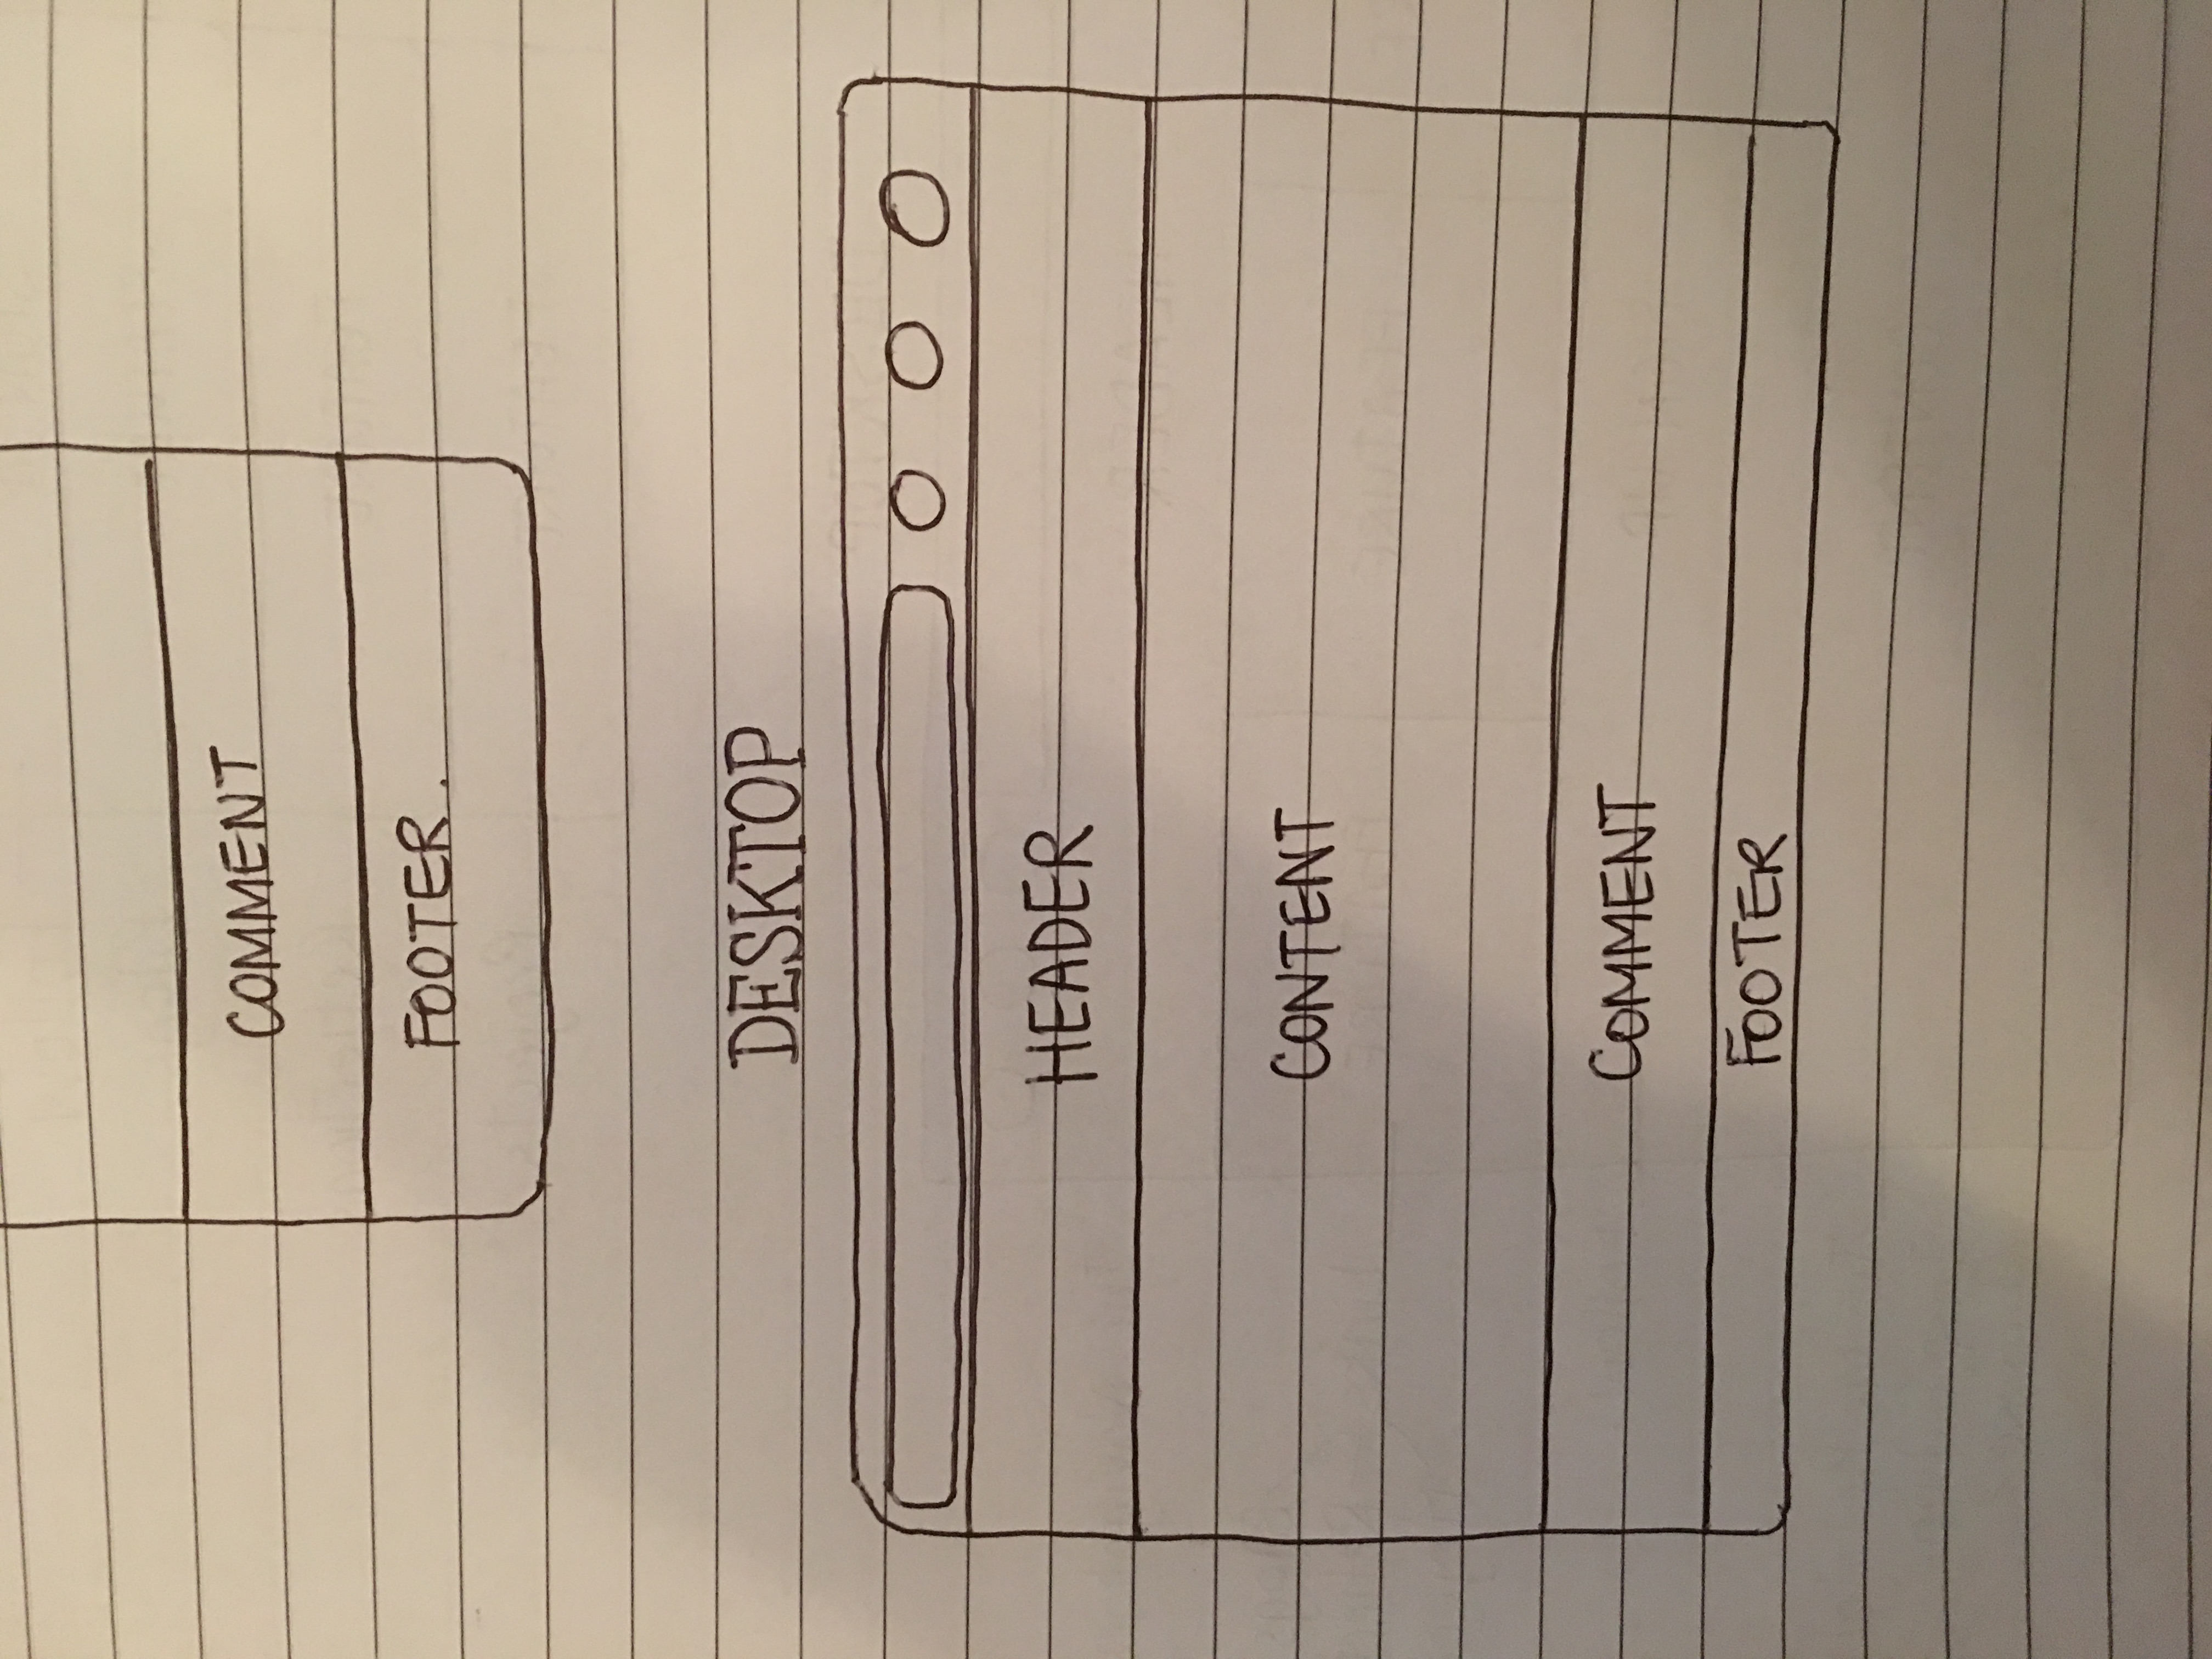 COMMENT
FOOTER.
DESKTOP
HEADER
CONTENT
COMMENT
FOOTER